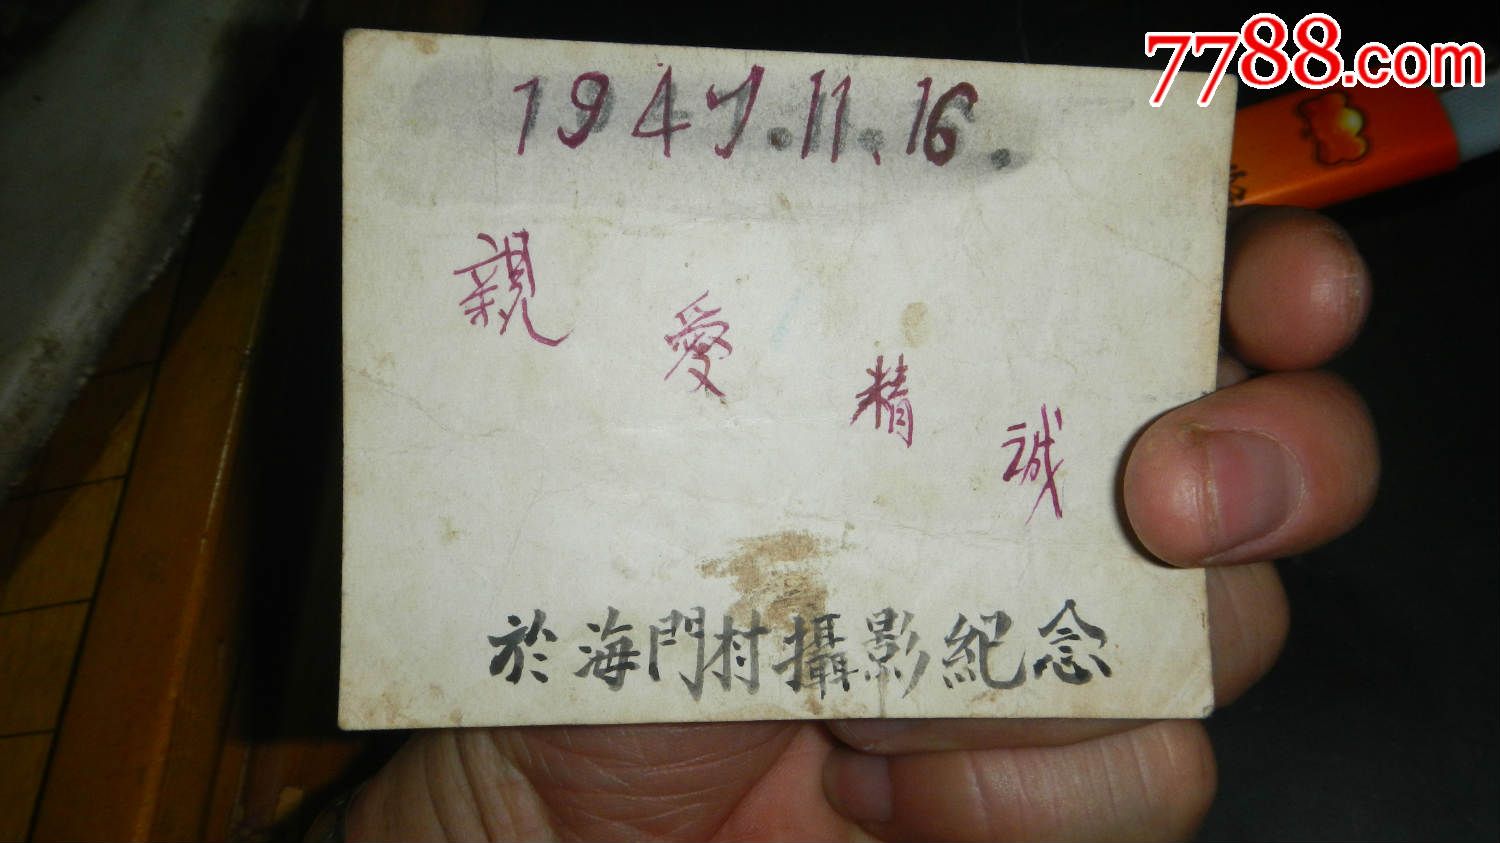 7788.com
1947.11.16.
親愛精誠
於海門村攝影紀念